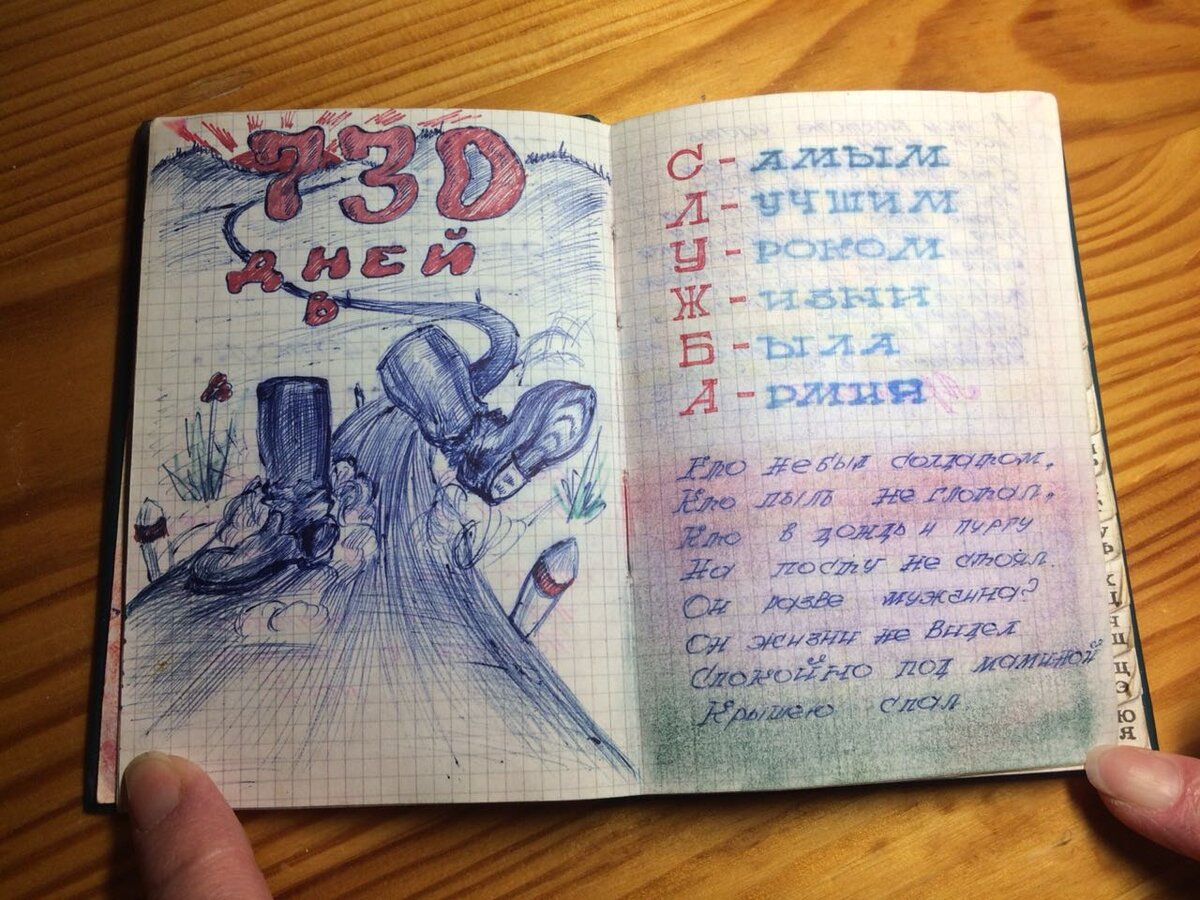 730
дней
в
С - АМЫМ
Л - УЧШИМ
У - РОКОМ
Ж - ИЗНИ
Б - ЫЛА
А - РМИЯ
Кто не был солдатом,
Кто пыль не глотал,
Кто в дождь и пургу
На посту не стоял.
Он разве мужчина?
Он жизни не видел
Спокойно под маминой
Крышею спал.
Ц
Э
Ю
Я